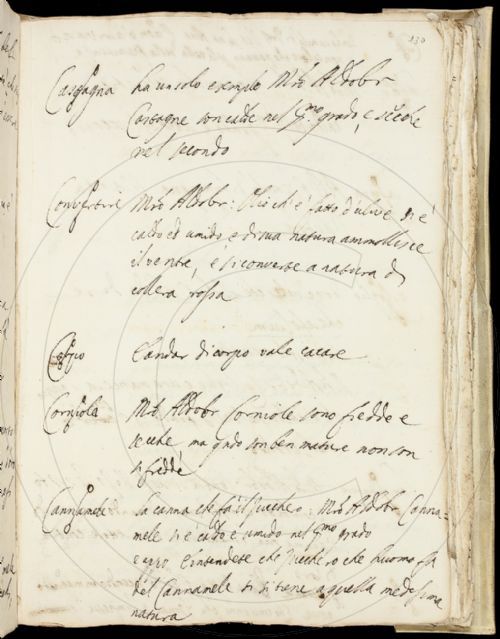 130
Castagna ha un solo exemplo Mro Aldobr
Castagne son calde nel pmo grado, e secche
nel secondo
Convertire Mro Aldobr: Olio ch'è fatto d'ulive si è
caldo ed umido e di sua natura ammollisce
il ventre, e si converte a natura di
collera rossa
Corpo l'andar di corpo vale cacare
Corniola Mro Aldobr Corniole sono fredde e
secche ma qndo son ben mature non son
sì fredde
Cannamele la canna che fa il zucchero: Mro Aldobr Canna-
mele si è caldo e umido nel pmo grado
e intendete che zucchero che l'huomo fa
del Cannamele si si tiene a quella medesima
natura